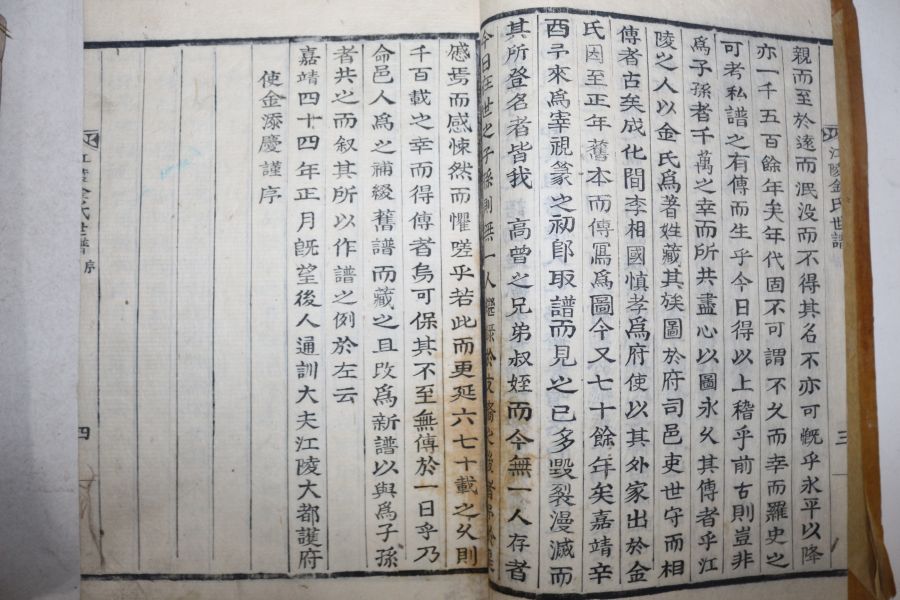 親而至於遠而泯没而不得其名不亦可慨乎永平以降
亦一千五百餘年矣年代固不可謂不久而幸而羅史之
可考私譜之有傳而生乎今日得以上稽乎前古則豈非
爲子孫者千萬之幸而所共盡心以圖永久其傳者乎江
陵之人以金氏爲著姓藏其族圖於府司邑吏世守而相
傳者古矣成化間李相國慎孝爲府使以其外家出於金
氏因至正年舊本而傳寫爲圖今又七十餘年矣嘉靖辛
酉予來爲宰視篆之初卽取譜而見之已多毁裂漫滅而
其所登名者皆我 高曾之兄弟叔姪而今無一人存者
今日在世之子孫則無一人
慼焉而感悚然而懼嗟乎若此而更延六七十載之久則
千百載之幸而得傳者烏可保其不至無傳於一日乎乃
命邑人爲之補綴舊譜而藏之且改爲新譜以與爲子孫
者共之而叙其所以作譜之例於左云
嘉靖四十四年正月旣望後人通訓大夫江陵大都護府
使金添慶謹序
江陵金氏世譜
三
江陵金氏世譜 序
四